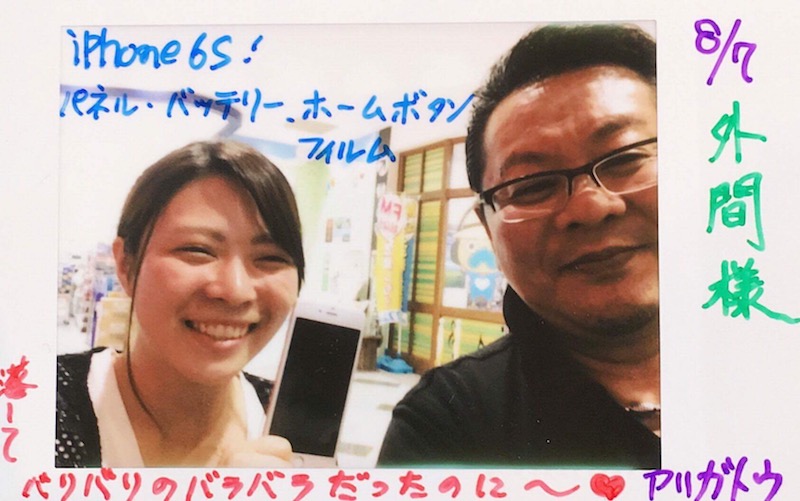 iPhone 6S!
パネル・バッテリー、ホームボタン
フィルム
8/7
外間様
落して
バリバリのバラバラだったのに〜♥
アリガトウ